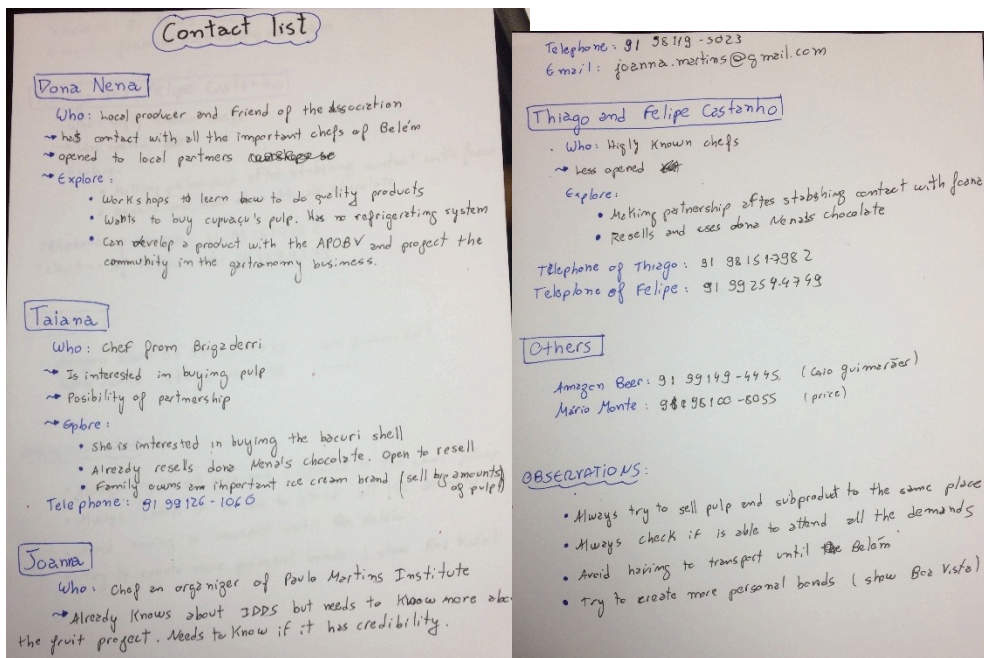 Contact list
Dona Nena
Who: Local producer and Friend of the association
→ has contact with all the important chefs of Belém
→ opened to local partners
→ Explore:
• Workshops to learn how to do quality products
• Wants to buy cupuaçu's pulp. Has no refrigerating system
• Can develop a product with the APOBV and project the
community in the gastronomy business.
Taiana
Who: Chef from Brigaderri
→ Is interested in buying pulp
→ Posibility of partnership
→ Explore:
• She is interested in buying the bacuri shell
• Already resells dona Nena's chocolate. Open to resell
• Family owns an important ice cream brand (sell big amounts
of pulp)
Telephone: 91 99126-1060
Joanna
Who: Chef an organizer of Paulo Martins Institute
→ Already Knows about IDDS but needs to Know more
the fruit project. Needs to Know if it has credibility.
Telephone: 91 98119-5023
Email: joanna.martins@gmail.com
Thiago and Felipe Castanho
Who: Higly Known chefs
→ Less opened
Explore:
• Making partnership after stabshing contact with Joana
• Resells and uses dona Nena's chocolate
Telephone of Thiago: 91 98151-7982
Telephone of Felipe: 91 99254-4749
Others
Amazon Beer: 91 99149-4445 (Caio guimarães)
Mário Monte: 98100-8055 (price)
OBSERVATIONS:
• Always try to sell pulp and subproduct to the same place
• Always check if is able to attend all the demands
• Avoid having to transport until Belém
• Try to create more personal bonds (show Boa Vista)